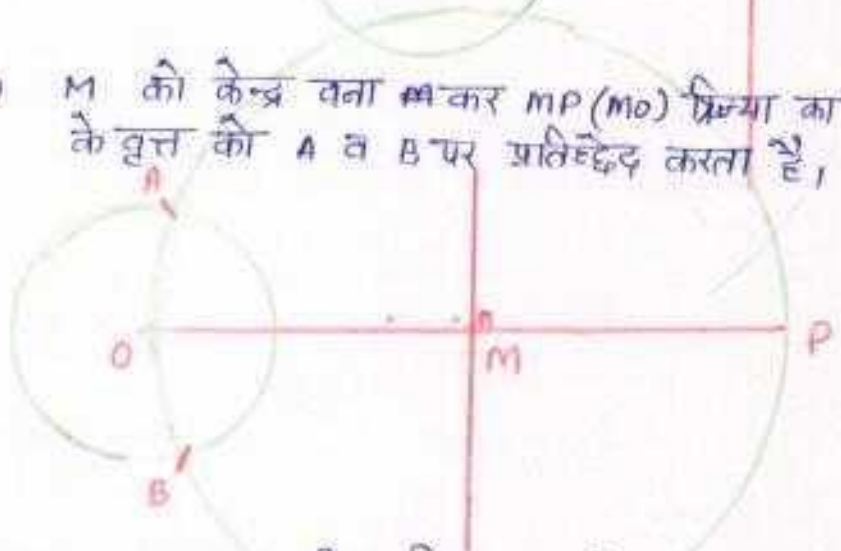 M को केन्द्र वना कर MP (MO) त्रिज्या का
के वृत्त को A व B पर प्रतिच्छेद करता है,
A
O
M
P
B